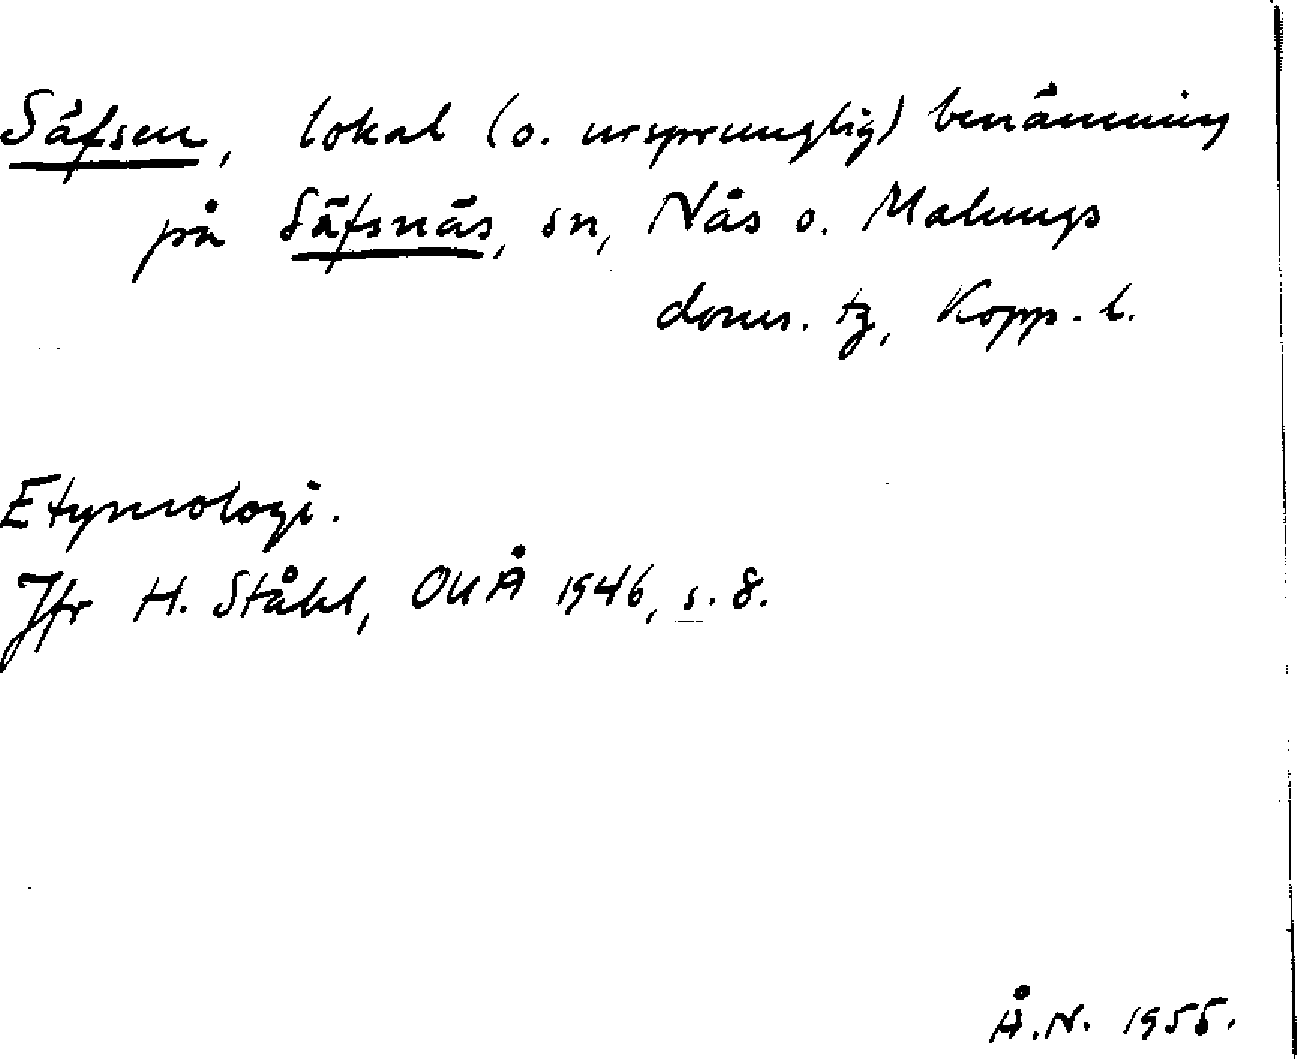 Säfsen, lokal (o. ursprunglig) benämning
på Säfsnäs, sn, Nås o. Malungs
doms. tg, Kopp. l.
Etymologi.
Jfr H. Ståhl, OUÅ 1946, s. 8.
Å.N. 1955.